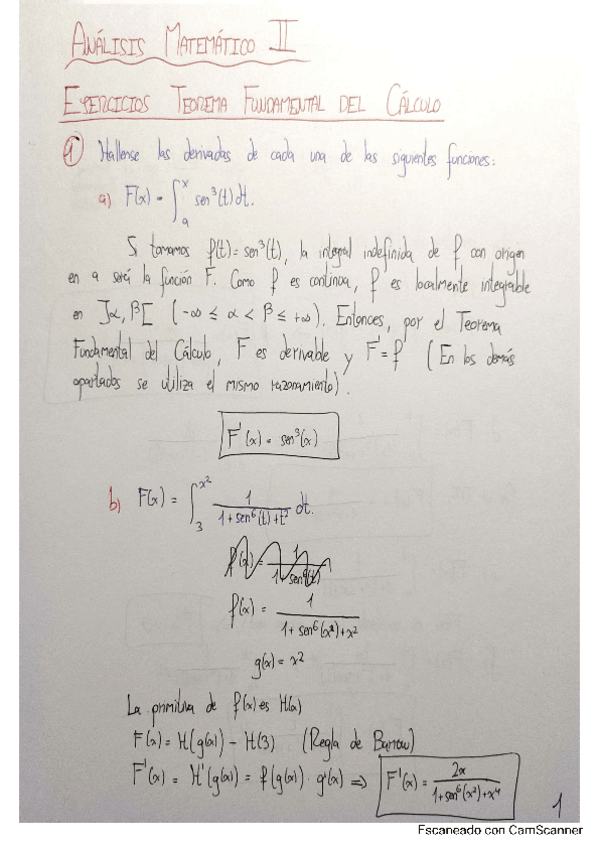 ANÁLISIS MATEMÁTICO II
EJERCICIOS TEOREMA FUNDAMENTAL DEL CÁLCULO
1 Hállense las derivadas de cada una de las siguientes funciones:
a) F(x) = ∫ₐˣ sen³(t) dt.
Si tomamos f(t) = sen³(t), la integral indefinida de f con origen
en a será la función F. Como f es continua, f es localmente integrable
en ]α, β[ (-∞ ≤ α < β ≤ +∞). Entonces, por el Teorema
Fundamental del Cálculo, F es derivable y F' = f (En los demás
apartados se utiliza el mismo razonamiento).
F'(x) = sen³(x)
b) F(x) = ∫₃^(x²) 1/(1+sen⁶(t)+t²) dt.
f(x) = 1/(1+sen⁶(x)+x²)
g(x) = x²
La primitiva de f(x) es H(x)
F(x) = H(g(x)) - H(3) (Regla de Barrow)
F'(x) = H'(g(x)) = f(g(x)) · g'(x) ⟹ F'(x) = 2x/(1+sen⁶(x²)+x⁴)
1
Escaneado con CamScanner